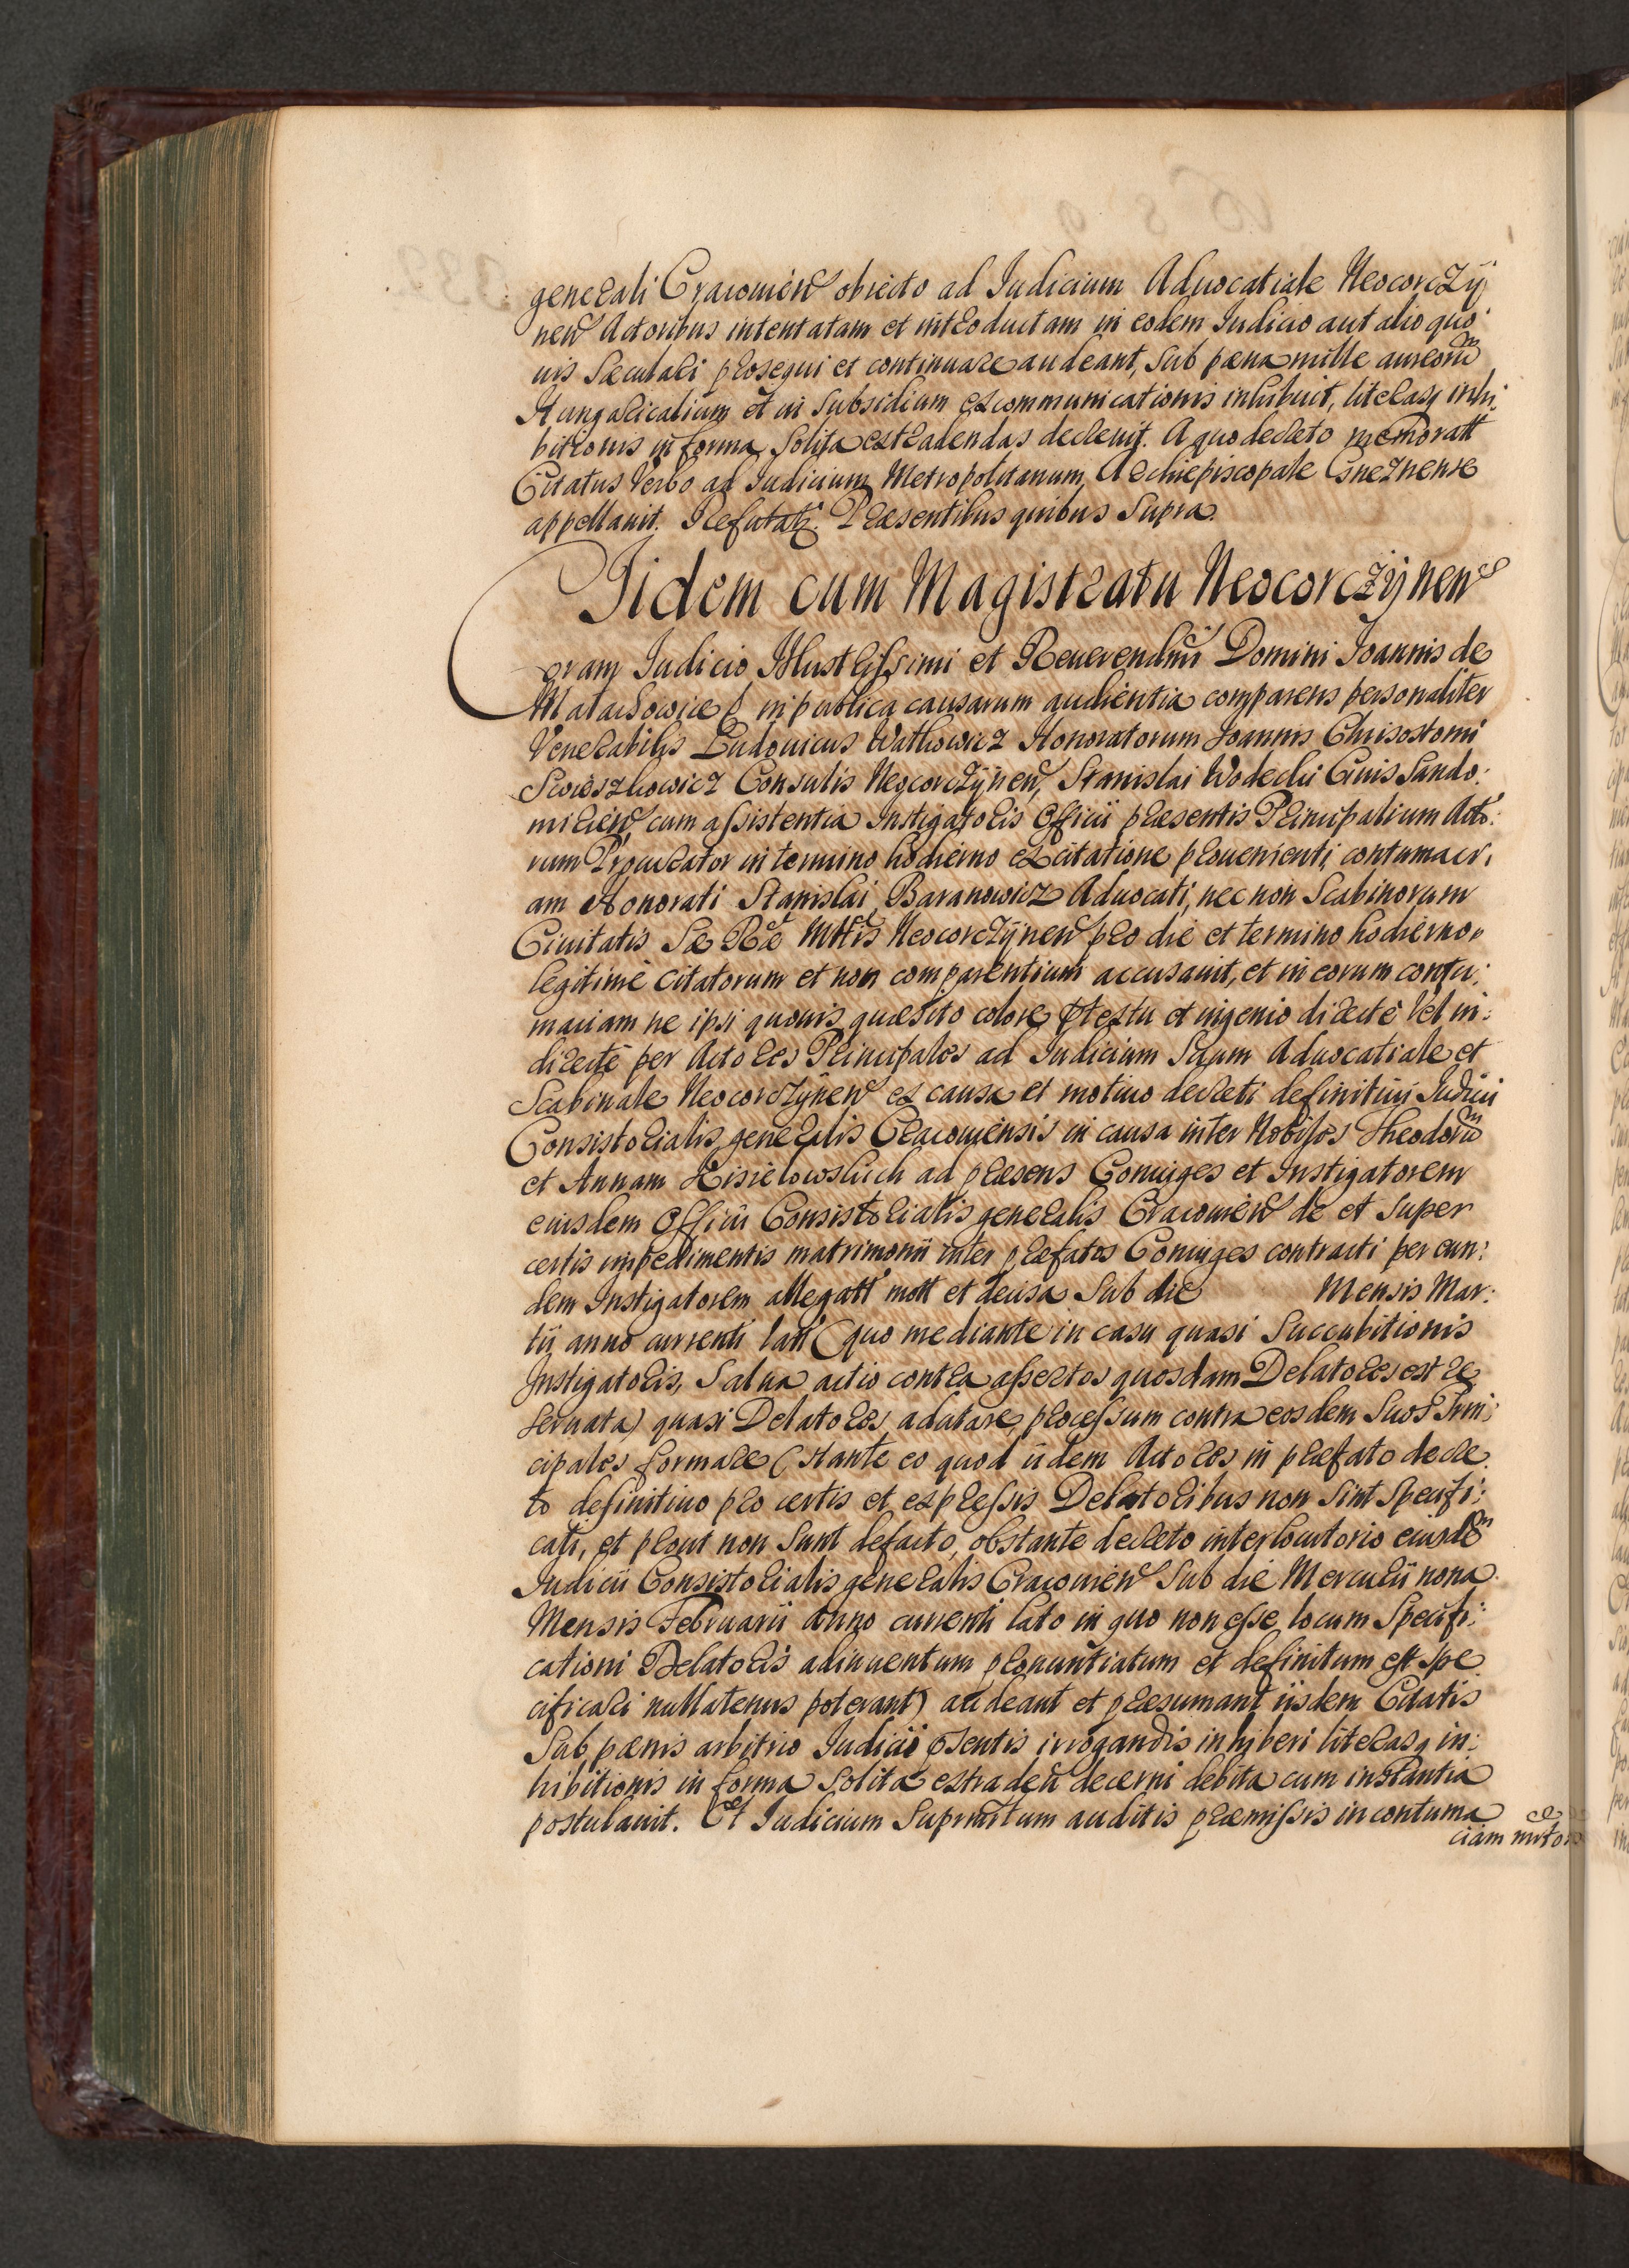 generali Cracouien obiecto ad Iudicium Aduocatiale Neocorczÿ
nen Actoribus intentatam et introductam in eodem Iudicio aut alio quo:
uis Sæculari prosequi et continuare audeant, Sub pæna mille aureorum
Hungaricalium et in Subsidium excommunicationis inhibuit, literasq inhi:
bitionis in forma Solita extradendas decreuit. A quo decreto memoratt
Citatus Verbo ad Iudicium Metropolitanum Archiepiscopale Gneznense
appellauit. Refutatt. Præsentibus quibus Supra.
Iidem cum Magistratu Neocorczÿnen
Coram Iudicio Illustrissimi et Reuerendmi Domini Joannis de
Matachowice in publica causarum audientia comparens personaliter
Venerabilis Ludouicus Wathowicz Honoratorum Joannis Chrisostomi
Consulis Neocorczÿnen, Stanislai Wodecki Ciuis Sando:
mirien, cum assistentia Instigatoris Officii præsentis Principalium Acto:
rum Procurator in termino hodierno ex citatione proueniente, contumaci:
am Honorati Stanislai Baranowicz Aduocati, nec non Scabinorum
Ciuitatis Sæ Ræ Mttis Neocorczÿnen pro die et termino hodierno
legitime citatorum et non comparentium accusauit, et in eorum contu:
maciam ne ipsi quouis quæsito colore, ptextu et ingenio directe Vel in:
directe per Actores Principales ad Iudicium Suum Aduocatiale et
Scabinale Neocorczÿnen ex causa et motiuo decreti definitiui Iudicii
Consistorialis generalis Cracouiensis in causa inter Nobiles Theodorum
et Annam Kisielowskich ad præsens Coniuges et Instigatorem
eiusdem Officii Consistorialis generalis Cracouien de et super
certis impedimentis matrimonii inter præfatos Coniuges contracti per eun:
dem Instigatorem allegatt mott et decisa Sub die Mensis Mar:
tii anno currenti latt (quo mediante in casu quasi Succubitionis
Instigatoris, Salua actio contra assertos quosdam Delatores est re
seruata) quasi Delatores adcitare, processum contra eosdem Suos Prin:
cipales formare (stante eo quod iidem Actores in præfato decre
to definitiuo pro certis et expressis Delatoribus non Sint Specifi:
cati, et prout non Sunt defacto, obstante decreto interlocutorio eiusdem
Iudicii Consistorialis generalis Cracouien Sub die Mercurii nona
Mensis Februarii anno currenti lato in quo non esse locum Specifi:
cationi Delatoris adinuentum pronuntiatum et definitum est spe
cificari nullatenus poterant) audeant et præsumant iisdem Citatis
Sub pænis arbitrio Iudicii psentis irrogandis inhiberi literasq in:
hibitionis in forma Solita extraden decerni debita cum instantia
postulauit. Et Iudicium Suprattum auditis præmissis in contuma
ciam